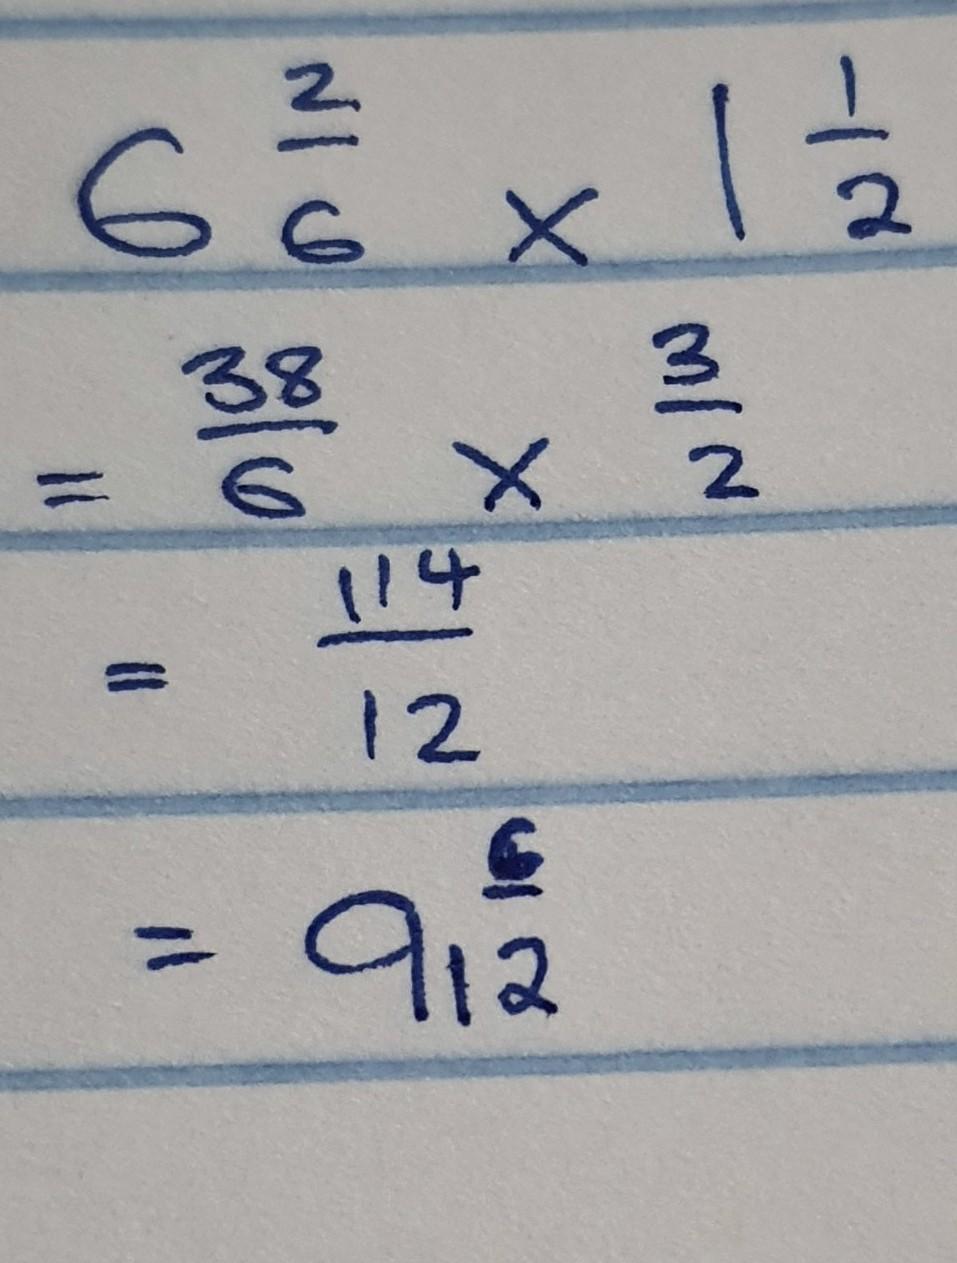 6 2/6 × 1 1/2
= 38/6 × 3/2
= 114/12
= 9 6/12